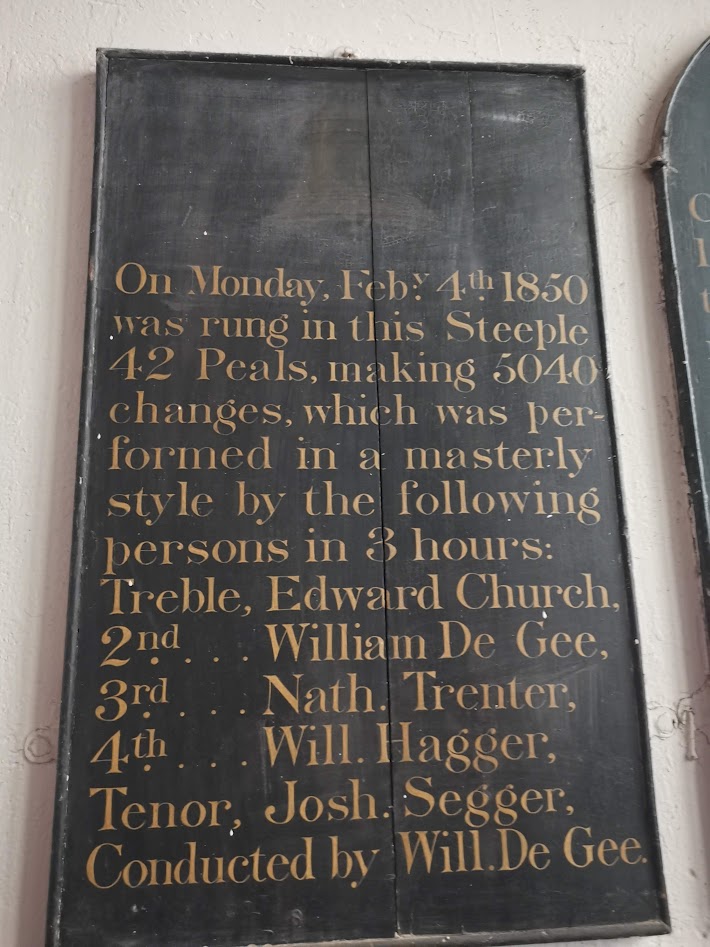 On Monday, Feb.y 4th 1850
was rung in this Steeple
42 Peals, making 5040
changes, which was per-
formed in a masterly
style by the following
persons in 3 hours:
Treble, Edward Church,
2nd . . . . William De Gee,
3rd . . . . Nath. Trenter,
4th . . . . Will. Hagger,
Tenor, Josh. Segger,
Conducted by Will. De Gee.